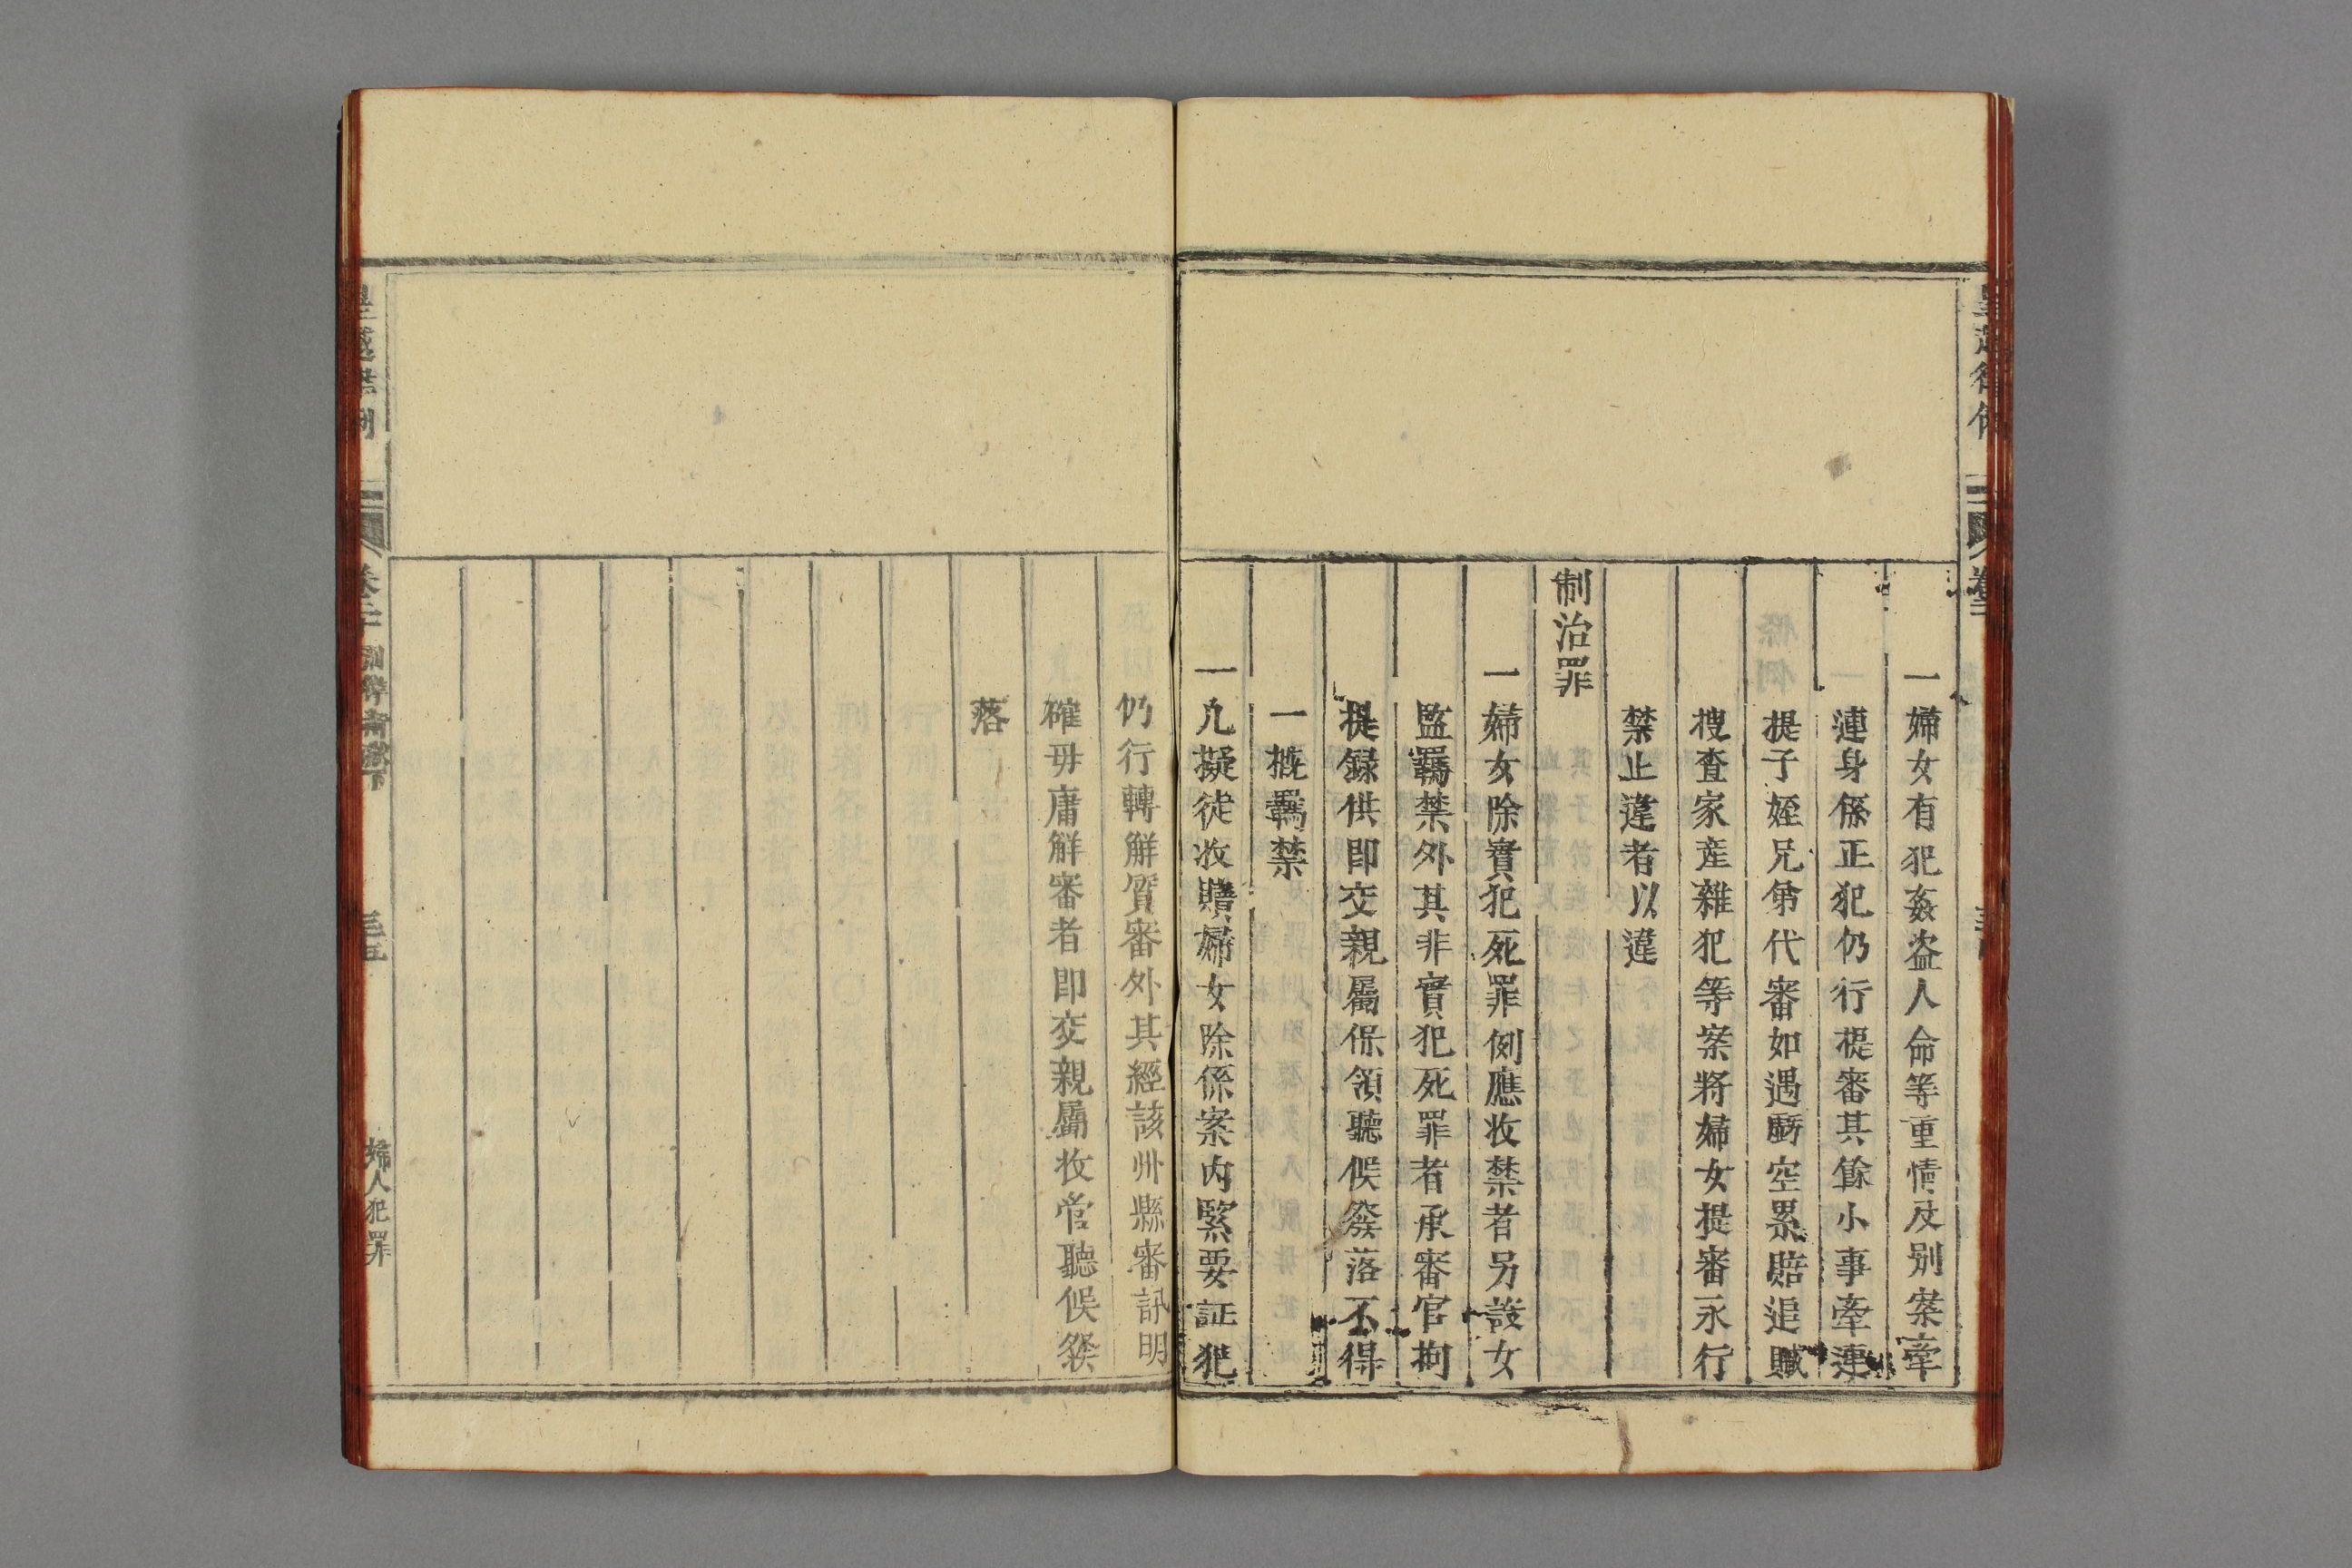 一婦女有犯姦盗人命等重情及别案牽
連身係正犯仍行提審其餘小事牽連
提子姪兄弟代審如遇虧空累賠追贓
搜查家産雜犯等案將婦女提審永行
禁止違者以違
制治罪
一婦女除實犯死罪例應收禁者另設女
監羈禁外其非實犯死罪者承審官拘
提録供即交親屬保領聽候發落不得
一概羈禁
一凡擬徒收贖婦女除係案内緊要証犯
仍行轉解質審外其經該州縣審訊明
確毋庸解審者即交親屬收管聽候發
落
卷二十
婦人犯罪